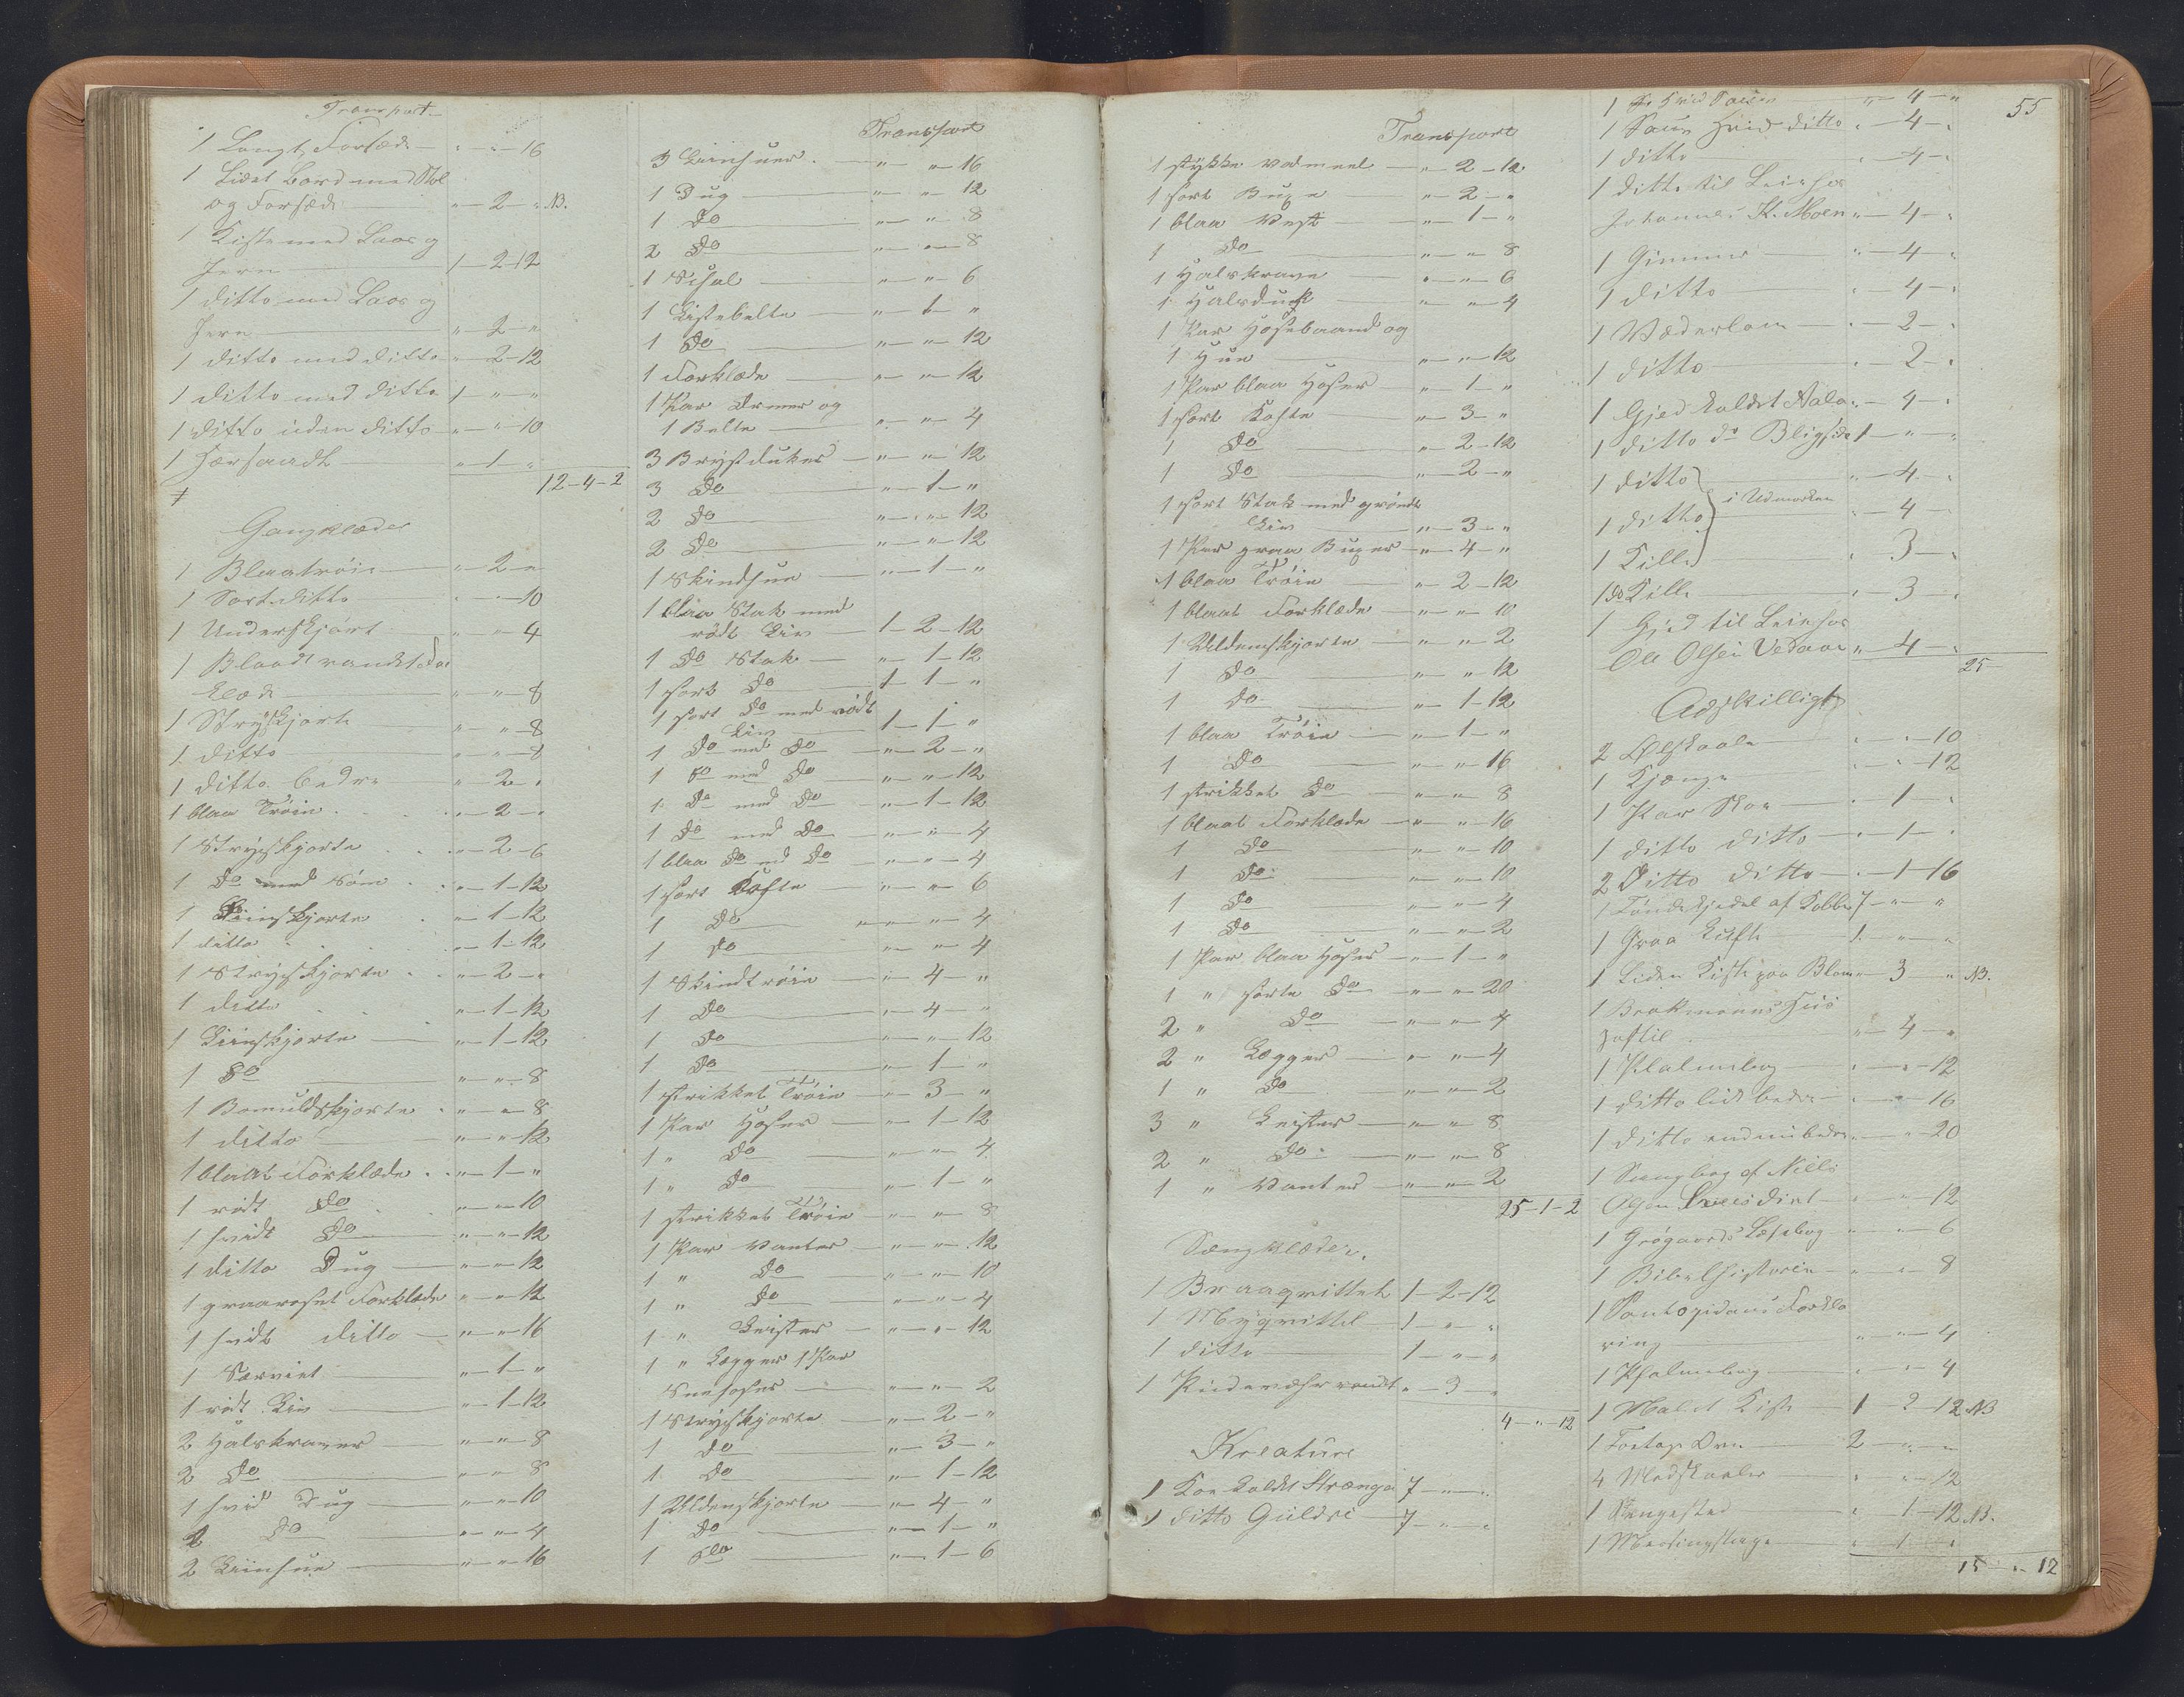 Transport
1 Langt Forsæde „ „ 16
1 Lidet Bord med Stol
og Forsæde „ 2 „ NB.
1 Kiste med Laas og
Jern 1 - 2 - 12
1 ditto med Laas og
Jern „ 2 „
1 ditto med ditto „ 2 - 12
1 ditto med ditto 1 „ „
1 ditto uden ditto „ „ 10
1 „ 1 „
12 - 4 - 2
Gangklæder
1 Blaatrøie „ 2 „
1 Sort ditto „ „ 10
1 Underskjört „ „ 4
1 Blaadt randet For
klæde „ „ 8
1 Stryskjorte „ „ 8
1 ditto „ „ 8
1 ditto bedre „ 2 „
1 blaa Trøie „ 2 „
1 Stryskjorte „ 2 - 6
1 Do med Söm „ 1 - 12
1 Liinskjorte „ 1 - 12
1 ditto „ 1 - 12
1 Stryskjorte „ 2 „
1 ditto „ 1 - 12
1 Liinskjorte „ 1 - 12
1 Do „ „ 8
1 Bomuldskjorte „ „ 8
1 ditto „ „ 12
1 blaat Forklæde „ 1 „
1 rödt Do „ „ 10
1 hvidt Do „ „ 12
1 ditto Dug „ „ 12
1 graaroset Forklæde „ „ 12
1 hvidt ditto „ „ 16
1 Serviet „ 1 „
1 rödt Liv „ 1 - 12
2 Halskraver „ „ 8
2 Do „ „ 8
1 hvid Dug „ „ 10
2 Do „ „ 4
2 Liinhue „ „ 16
Transport
3 Liinhuer „ „ 16
1 Dug „ „ 12
1 Do „ „ 8
2 Do „ „ 8
1 Schal „ „ 6
1 Listebelte „ 1 „
1 Do „ „ 12
1 Forklæde „ „ 12
1 Par Ermer og
1 Belte „ „ 4
3 Brystduker „ „ 12
3 Do „ 1 „
2 Do „ „ 12
2 Do „ „ 12
1 Skindhue „ 1 „
1 blaa Stak med
rödt Liv 1 - 2 - 12
1 Do Stak „ 1 - 12
1 sort Do 1 - 1 „
1 sort Do med rödt
Liv 1 - 1 „
1 Do med Do „ 2 „
1 Do med Do „ „ 12
1 Do med Do „ 1 - 12
1 Do med Do „ „ 4
1 blaa Do med Do „ „ 4
1 sort Kofte „ „ 6
1 Do „ „ 4
1 Do „ „ 4
1 Skindtrøie „ 4 „
1 Do „ 4 „
1 Do „ „ 12
1 Do „ 1 „
1 strikket Trøie „ 3 „
1 Par Hoser „ 1 - 12
1 „ Do „ „ 4
1 „ Do „ 1 „
1 strikket Trøie „ „ 8
1 Par Vanter „ „ 12
1 „ Do „ „ 10
1 „ Do „ „ 4
1 „ Leister „ „ 12
1 „ Lægger 1 Par
Sneehoser „ „ 2
1 Stryskjorte „ 2 „
1 Do „ 3 „
1 Do „ 1 - 12
1 Uldenskjorte „ 4 „
1 Do „ 1 „
1 Do „ 1 - 6
Transport
1 stykke Vadmeel „ 2 - 12
1 sort Buxe „ 2 „
1 blaa Vest „ 1 „
1 Do „ „ 8
1 Halskrave „ „ 6
1 Halsduk „ „ 4
1 Par Hosebaand og
1 Hue „ „ 12
1 Par blaa Hoser „ 1 „
1 sort Kofte „ 3 „
1 Do „ 2 - 12
1 Do „ 2 „
1 sort Stak med grøndt
Liv „ 3 „
1 Par graa Buxer „ 4 „
1 blaa Trøie „ 2 - 12
1 blaat Forklæde „ „ 10
1 Uldenskjorte „ „ 2
1 Do „ „ 12
1 Do „ 1 - 12
1 blaa Trøie „ 1 „
1 Do „ „ 16
1 strikket Do „ „ 8
1 blaat Forklæde „ „ 16
1 Do „ „ 10
1 Do „ „ 10
1 Do „ „ 4
1 Do „ „ 2
1 Par blaa Hoser „ 1 „
1 „ sorte Do „ „ 20
2 „ Do „ „ 4
2 „ Lægger „ „ 4
1 „ Do „ „ 2
3 „ Leister „ „ 8
2 „ Do „ „ 8
1 „ Vanter „ „ 2
25 - 1 - 2
Sengklæder.
1 Braaqvittel 1 - 2 - 12
1 Myqvittel 1 „ „
1 ditto 1 „ „
1 „ 3 „
4 „ 12
Kreature
1 Koe kaldt Strænga 7 „ „
1 ditto Guldri 7 „ „
55
„ 4 „
1 Sau hvid ditto „ 4 „
1 ditto „ 4 „
1 ditto til Leiehos
Johannes K. Moen „ 4 „
1 Gimmer „ 4 „
1 ditto „ 4 „
1 Væderlam „ 2 „
1 ditto „ 2 „
1 Gjed kaldet „ 4 „
1 ditto do 1 „ „
1 ditto „ 4 „
i Udmarken
1 ditto „ 4 „
1 Kille „ 3 „
1 do Kille „ 3 „
1 Gjed til Leiehos
Ole Olsen „ 4 „
25
Adskilligt
2 Ølskaale „ „ 10
1 Kjænge „ „ 12
1 Par Skoe „ 1 „
1 ditto ditto „ 1 „
2 Ditto ditto „ 1 - 16
1 Töndekjedel af Kobber 7 „ „
1 Graa Kufte 1 „ „
1 Liden Kiste „ 3 „ NB.
1 Brokmanns Huus
Postil „ 4 „
1 Psalmebog „ „ 12
1 ditto lidt bedre „ „ 16
1 ditto endnu bedre „ „ 20
1 Sangbog af Niels
Olsen „ „ 12
1 Grøgaards Læsebog „ „ 6
1 Bibelhistorie „ „ 8
1 Pontopidans Forkla
ring „ „ 4
1 Psalmebog „ „ 4
1 Malet Kiste 1 - 2 - 12 NB
1 Toetags Ovn 2 „ „
4 Madskaaler „ „ 12
1 Sengested „ 1 - 12 NB.
1 Messingstage „ 1 „
15 „ 12